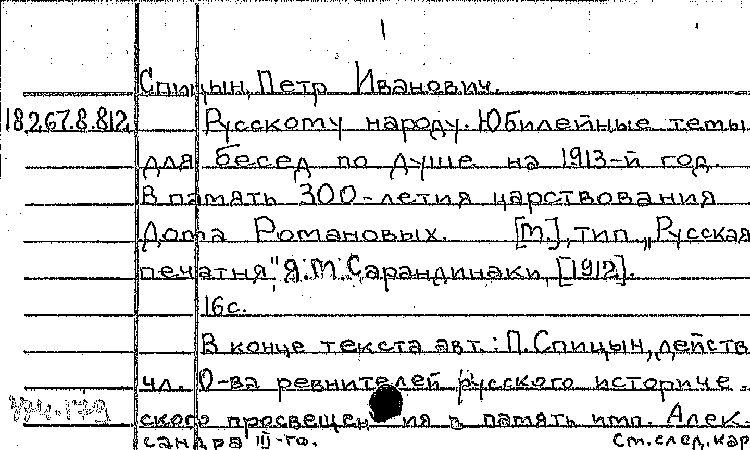 Спицын, Петр Иванович.
18.267.8.812 Русскому народу. Юбилейные темы
для бесед по душе на 1913-й год.
В память 300-летия царствования
Дома Романовых. [М.], тип. „Русская
печатня", Я.М. Сарандинаки, [1912].
16 с.
В конце текста авт.: П. Спицын, действ.
чл. О-ва ревнителей русского историче-
ского просвещения в память имп. Алек-
сандра III-го. См. след. кар